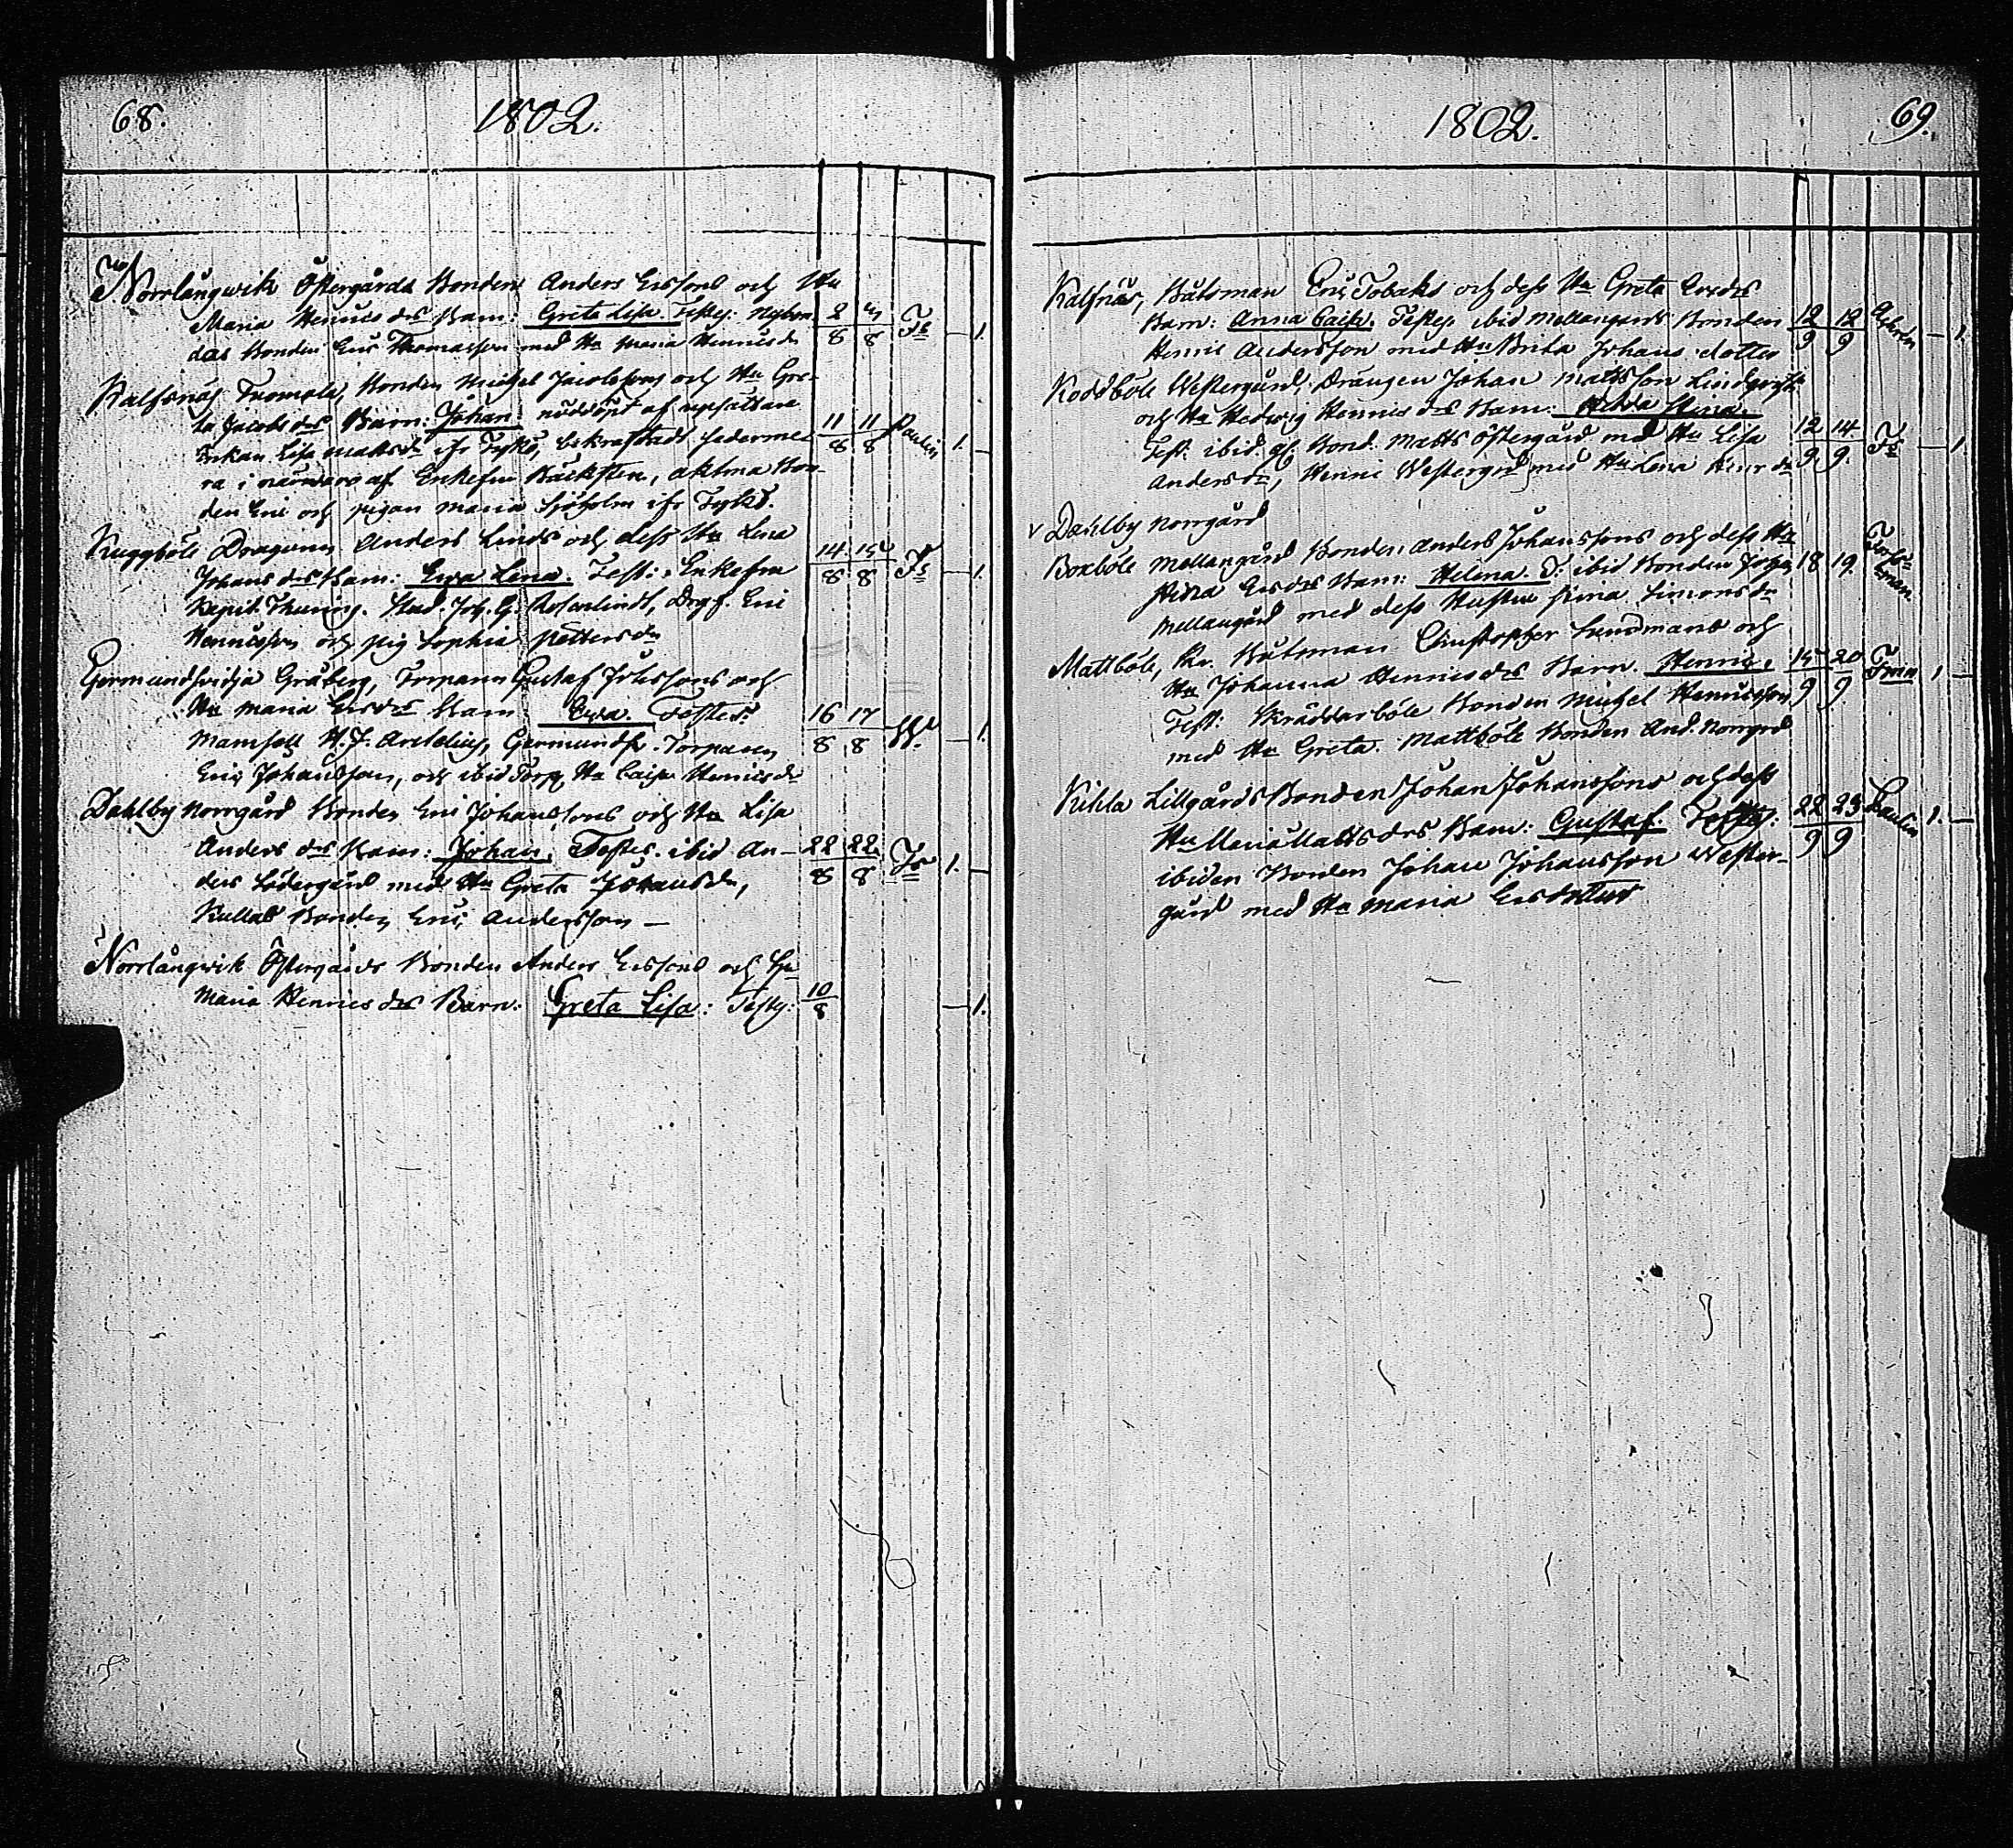 68.
1802.
Norrlångwik Östergårds Bonden Anders Erssons och Hu
Maria Henricsdrs Barn: Greta Lisa. Testes: Nybon- 2 4
das Bonden Eric Thomasson med Hu Maria Henricsdr 8 8 1.
Kalfsnäs Bonden Michel Jacobssons och Hu Gre-
ta Jacobsdrs Barn: Johan: nöddöpt af 11 11 Paulin 1.
Enkan Lisa Mattsdr ifr Tykö, bekräftadt 8 8
ra i närwaro af Enkefru Bäcksten, Bon-
den Eric och pigan Maria Sjöholm ifr Tykö.
Kuggböle Dragonen Anders Linds och dess Hu Lena
Johansdrs Barn: Ewa Lena. Test: Enkefru 14 15 1.
Kapit. Thuring. Stud. Joh. G. Rosenlindt, Drgf. Eric 8 8
Henricsson och pig Sophia Pettersdr
Germundsvidja Gråberg, Torparen Gustaf Johssons och
Hu Maria Ersdrs Barn Ewa. Testes: 16 17
Mamsell H. J. Germunds. Torparen 8 8 1.
Eric Johansson, och ibid Torp. Hu Caisa Henricsdr
Dahlby Norrgård Bonden Eric Johanssons och Hu Lisa
Andersdrs Barn: Johan. Testes. ibid An- 22 22 1.
ders Södergård med Hu Greta Johansdr, 8 8
Kullas Bonden Eric Andersson
Norrlångwik Östergårds Bonden Anders Erssons och Hu
Maria Henricsdrs Barn: Greta Lisa: Testes: 10 1.
8
1802.
69.
Kalfnäs, Båtsman Eric Tobaks och dess Hu Greta Ersdrs
Barn: Anna Caisa. Testes. ibid Mellangårds Bonden 12 12 1.
Henric Andersson med Hu Brita Johans dotter 9 9
Koddböle Westergård, Drängen Johan Mattsson Lindqvists
och Hu Hedwig Henricsdrs Barn: Stina.
Test: ibid. Bond. Matts Östergård med Hu Lisa 12 14 1.
Andersdr, Henric Westergrd med Hu Lena Henrdr 9 9.
v Dahlby Norrgård
Boxböle Mellangård Bonden Anders Johanssons och dess Hu
Stina Ersdrs Barn: Helena. T: ibid Bonden Johan 18 19.
Mellangård med dess Hustru Stina Simonsdr
Mattböle, Båtsman Christopher Sundmans och
Hu Johanna Henricsdrs Barn. Henric. 15 20 1
Test: Skräddarböle Bonden Michel Henricsson 9 9.
med Hu Greta. Mattböle Bonden And. Norrgrd
Kihla Lillgårds Bonden Johan Johanssons och dess
Hu Maria Mattsdrs Barn: Gustaf. Testes: 22 23 Paulin 1.
ibidem Bonden Johan Johansson Wester- 9 9
gård med Hu Maria Ersdotter